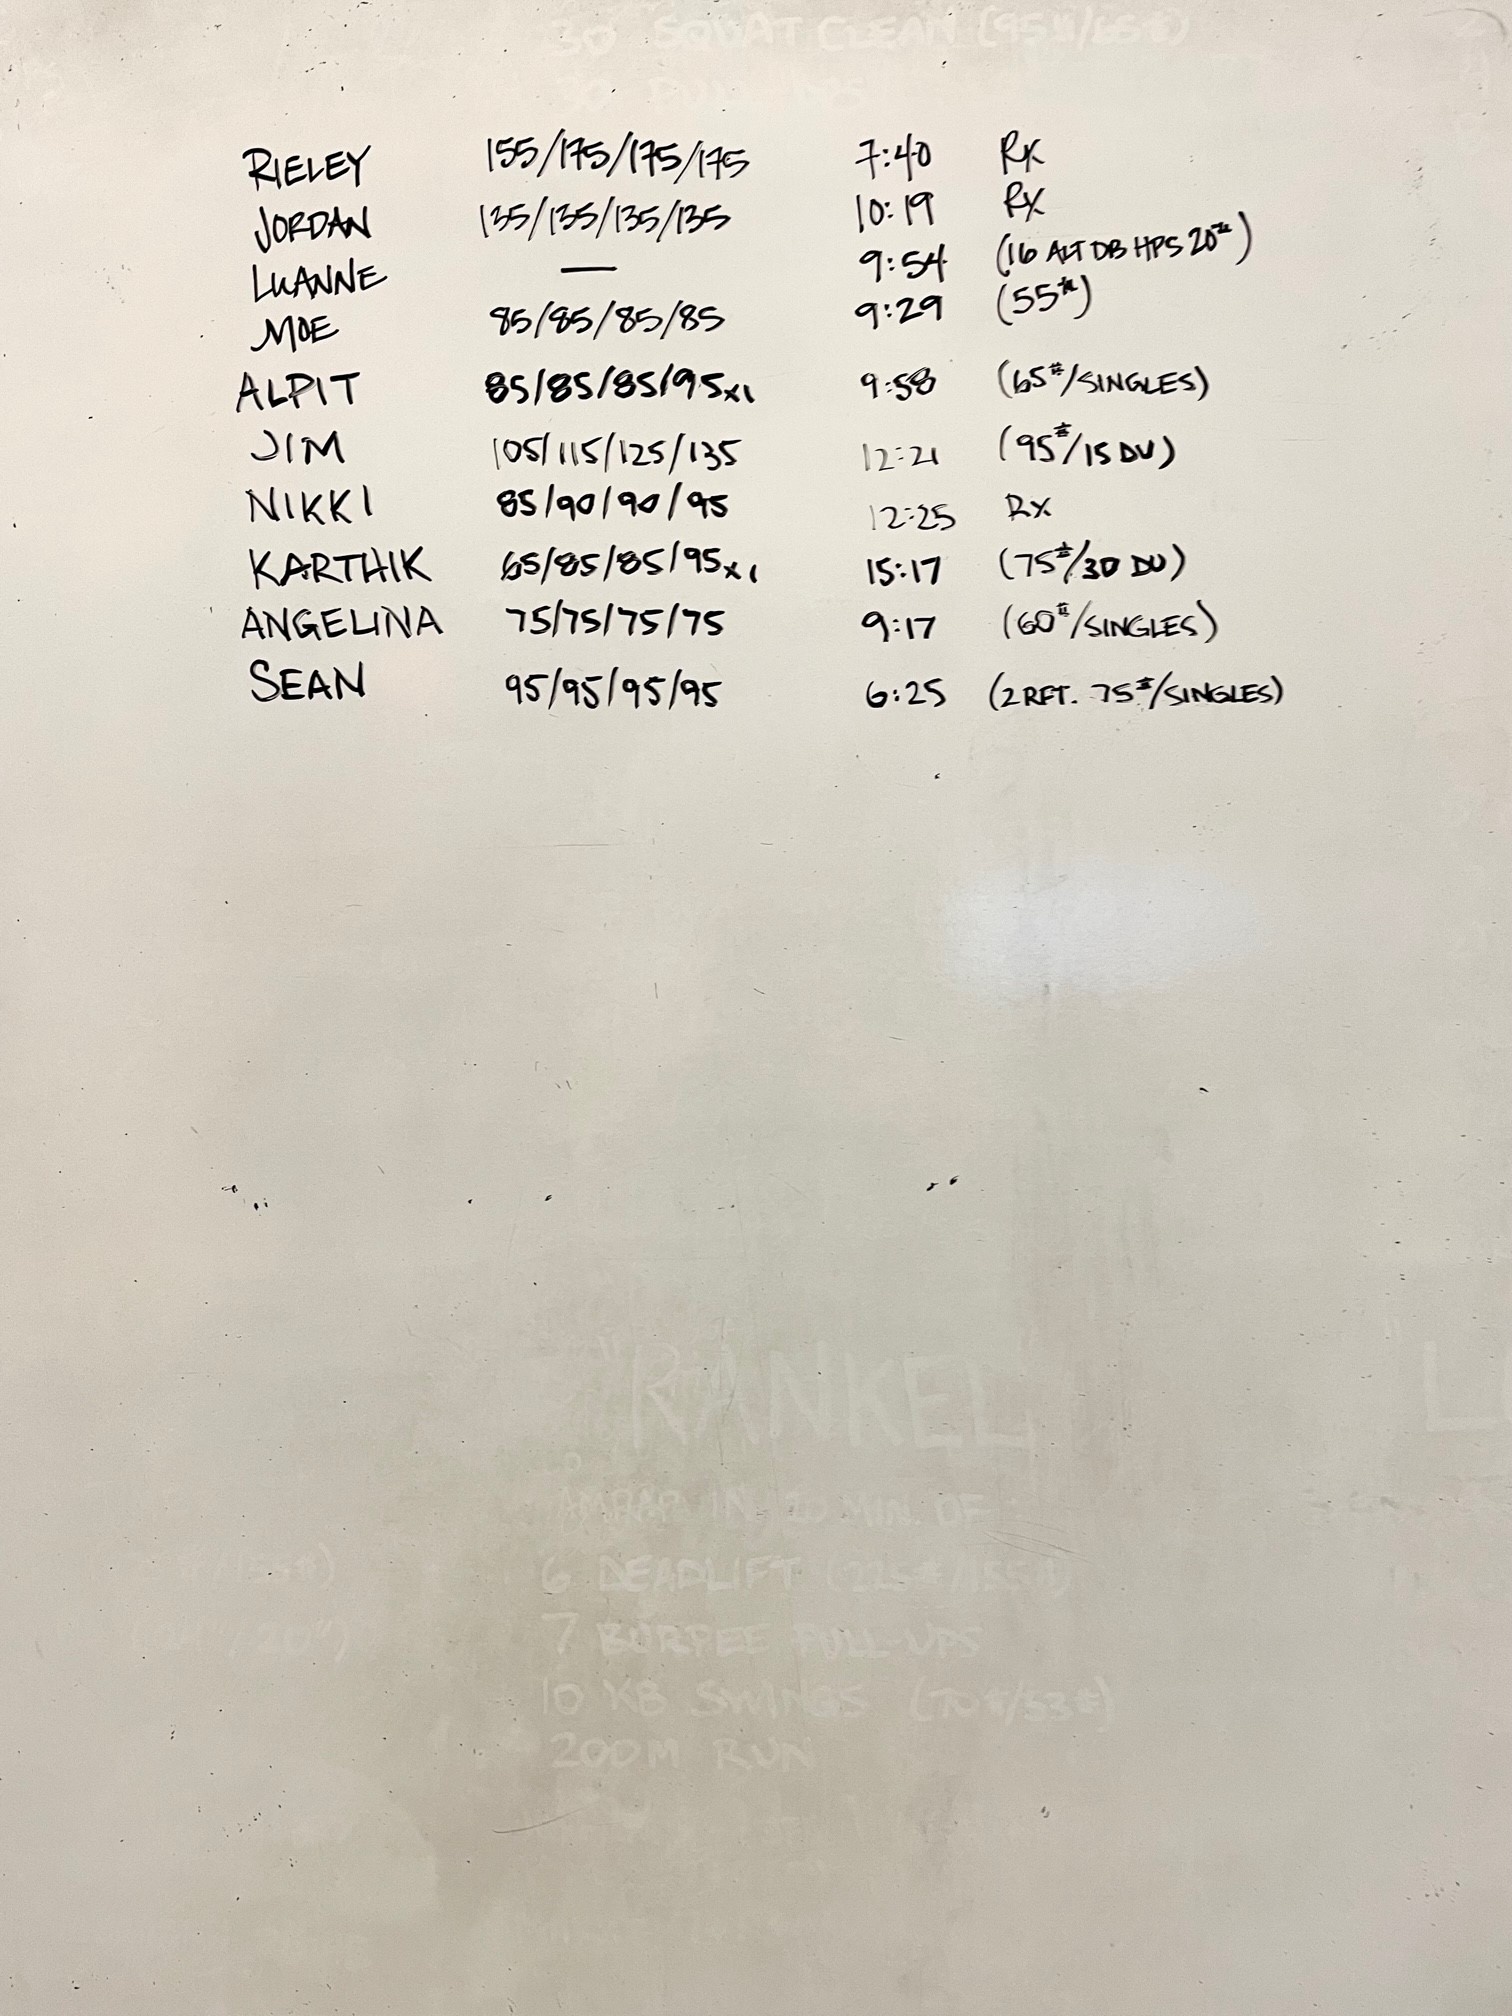 30 SQUAT CLEAN (95#/65#)
RIELEY 155/175/175/175 7:40 Rx
JORDAN 135/135/135/135 10:19 Rx
LUANNE — 9:54 (16 ALT DB HPS 20#)
MOE 85/85/85/85 9:29 (55#)
ALPIT 85/85/85/95x1 9:58 (65#/SINGLES)
JIM 105/115/125/135 12:21 (95#/15 DU)
NIKKI 85/90/90/95 12:25 Rx
KARTHIK 65/85/85/95x1 15:17 (75#/30 DU)
ANGELINA 75/75/75/75 9:17 (60#/SINGLES)
SEAN 95/95/95/95 6:25 (2 RFT. 75#/SINGLES)
"RANKEL
AMRAP IN 20 MIN. OF
6 DEADLIFT (225#/155#)
7 BURPEE PULL-UPS
10 KB SWINGS (70#/53#)
200M RUN